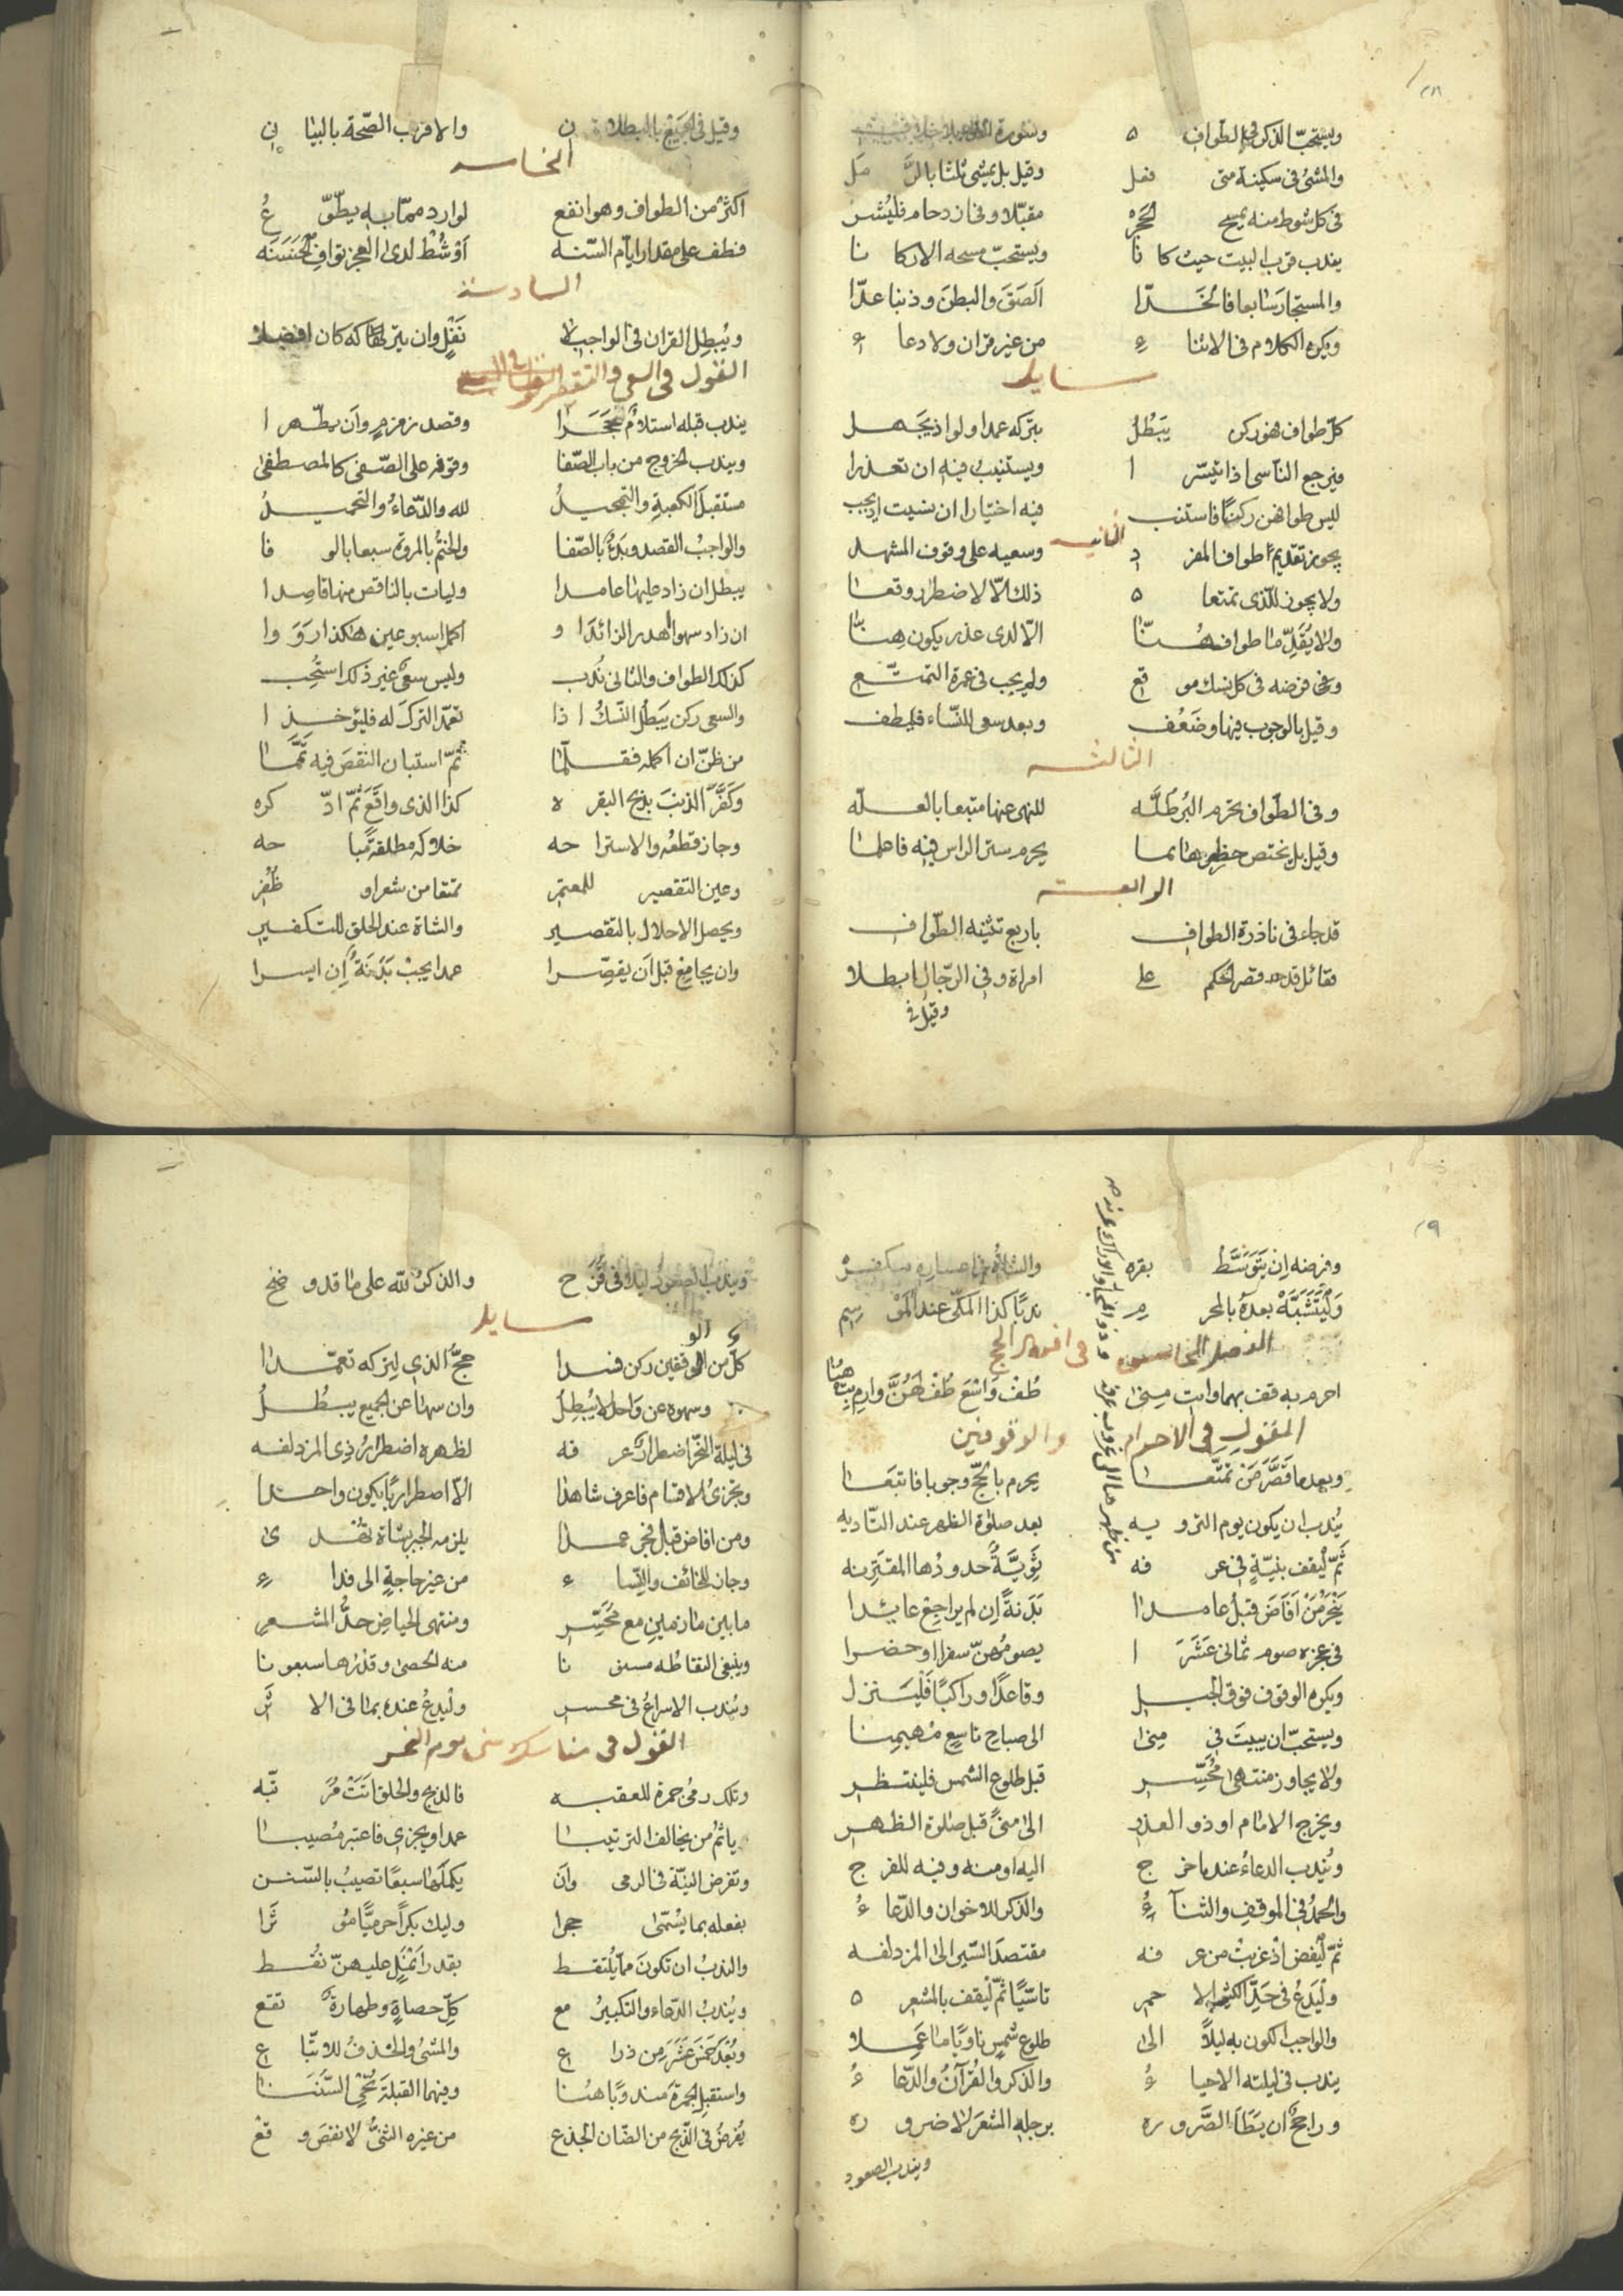 ٢٨
ويستحبّ الذكر في الطواف ه وسورة
والمشى فى سكينة متى فعل وقيل بل يمشى ثلثا بالرَّمَل
فى كل شوط منه يمسح الحَجَرْ مقبّلا وفى ازدحام فليُشر
يندب قرب البيت حيث كانا ويستحبّ مسحه الاركانا
والمستجار سابعا فالخَدّا الصَقَ والبطنَ وذنبا عدّا
ويكره الكلام فى الاثناء من غير قران ولا دعاء
مسايل
كلّ طواف هو ركن يَبْطُلُ بتركه عمدا ولو اذ يَجهل
فيرجع الناسى اذا تيسّرا ويستنيبُ فيه ان تعذرا
ليس طوافهن ركنًا فاستنب فيه اختيارا ان نسيت اذ يجب
الثانيه
يجوز تقديم طواف المفرد وسعيه على وقوف المشهد
ولا يجوز للّذى تمتعا ه ذلك الّا لاضطرار وقعا
ولا يُقَدِّما طواف هُنّا الّا لدى عذر يكون هنا
وهى فرضه فى كل نسك موقع ولم يجب فى عمرة التمتّع
وقيل بالوجوب فيها وضَعُف وبعد سعى للنّساء فليطف
الثالثه
وفى الطّواف يحرم البُرطُلَّه للنهى عنها متبعا بالعلّه
وقيل بل يختص حظرها بما يحرم ستر الراس فيه فاعلما
الرابعه
قد جاء فى ناذرة الطواف باربع تثنيه الطّواف
فقائل قد قصر الحكم على امراة وفى الرّجال ابطلا
وقيل فى
وقيل فى الجميع بالبطلان والاقرب الصّحة بالبيان
الخامسه
اكثرْ من الطواف وهو انفع لوارد ممّا به يطّوّع
فطف على مقدار ايّام السّنه اوْ شُطْ لدى العجز توافِ الحَسَنَه
السادسة
ويُبطِل القران فى الواجب لا نَفْلٍ وان يتركه كان افضلا
القول فى السعى والتقصير
يندب قبله استلامُ الحَجَرَا وقصد زمزمٍ وان يطّهرا
ويندب الخروج من باب الصّفا وقوفه على الصّفى كالمصطفى
مستقبلَ الكعبةِ والتبجيلُ لله والدّعاءُ والتحميلُ
والواجبُ القصد وبَدءٌ بالصّفا والختمُ بالمروة سبعا بالوفا
يبطل ان زاد عليها عامدا وليات بالناقص منها قاصدا
ان زاد سهوا اهدر الزائدَ او اكمل اسبوعين هكذا رَوَوا
كذلك الطواف والثانى نُدب وليس سعىٌ غير ذلك استُحِب
والسعى ركن يَبطُل النّسكُ اذا تعمّد التركَ له فليؤخذا
من ظنّ ان اكمله فقلّما ثمّ استبان النقصَ فيه تمّما
وكَفَّرَ الذنبَ بذبح البقره كذا الذى واقَعَ ثمّ ادّكره
وجاز قطعُه والاستراحه خلاله مطلقةً مباحه
وعين التقصير للمعتمر تمتعا من شعر او ظُفُر
ويحصل الاحلال بالتقصير والشاة عند الحلق للتكفير
وان يجامع قبل ان يقصّرا عمدا يجبْ بَدَنَةٌ إن ايسرا
٢٩
وفرضه إن يَتَوَسَّطْ بقره والشاةُ
وَلْيَتَشَبَّهْ بعدهُ بالمحرم ندبًا كذا المكّى عند المَوْسِم
الفصل الخامس فى افعال الحج
احرم به قف بهما وايت مِنى طُفْ وَاسْعَ طُفْ لهُنَّ وارم بِتْ هنا
القول فى الاحرام والوقوفين
وبعد ما قَصَّرَ مَنْ تَمَتَّعا يحرم بالحجّ وجوبا فاتبعَا
يُندب ان يكون يوم الترويه بعد صلوٰة الظهر عند التّاديه
ثمّ ليقف بنيّةٍ فى عرفه ثَوِيَّةٌ حدودُها المقترنه
يَنْحَرُ مَنْ اَفَاضَ قبلُ عامدا بَدَنةً إن لم يراجِعْ عائدا
فى عجزه صوم ثمانى عَشَرَا يصومُهنّ سفرا او حضرا
ويكره الوقوف فوق الجبل وقاعدًا وراكبًا فَلْيَنزل
ويستحبّ ان يبيتَ فى مِنى الى صباحِ تاسعٍ مُهيمِنا
ولا يجاوز منتهى مُحَسِّر قبل طلوع الشمس فلينتظر
ويخرج الامام او ذو العذر الى مِنىً قبل صلوٰة الظهر
ويُندب الدعاءُ عند ما خرج اليه او منه وفيه للفرج
والحمدُ فى الموقفِ والثناءُ والذكر للاخوان والدّعاءُ
ثمّ ليُفض اذ غربتْ من عرفه مقتصدَ السّير الى المزدلفه
وليَدعُ فى حَدِّ الكثيب الاحمر تاسّيًا ثمّ ليقف بالمشعر ه
والواجب الكون به ليلًا الى طلوع شمسٍ ناويًا ما عَمِلا
يندب فى ليلته الاحياءُ والذكر والقُرآنُ والدّعاءُ
وراجحٌ ان يَطَاَ الصَّروره برجله المشعَرَ لا ضروره
ويندب الصعود
ويندب الصعودُ فى قُزَح والذكرُ لله على ما قد وضح
مسايل
كلّ من الوقفين ركن فسدا حجّ الذى يتركه تعمّدا
وسهوه عن واحد لا يُبطِلُ وان سها عن الجميع يبطُلُ
فى ليلة النّحر اضطرار عرفه لظهره اضطرارُ ذى المزدلفه
ويجزئ الاقسام فاعرف شاهدا الّا اضطراريًا يكون واحدا
ومن افاض قبل فجر عمدا يلزمه الجبر بشاة
وجاز للخائف والنّساء من غير حاجةٍ الى فداء
ما بين مازمينِ مع مُحَسِّرِ ومنتهى الحياضِ حدُّ المشعرِ
وينبغى التقاطه منه الحصى وقدرها سبعونا
ويُندب الاسراعُ فى محسر وليدعُ عنده بما فى الاثَر
القول فى مناسك منى يوم النحر
وتلك رمىُ جمرة للعقبه فالذبح والحلق اتَتْ مُرَتّبه
ياثمُ من يخالف الترتيبا عمدا ويجزى فاعتبر مُصيبا
وتفرض النيّة فى الرمى وان يكملَها سبعًا تصيبُ بالسّنن
بفعله بما يُسَمّى حجرا وليك بكرًا حرميًّا مؤثَرا
والندبُ ان تكونَ مما يُلتقط بقدر اَنْمُلٍ عليهنّ نُقَط
ويُندبُ الدّعاء والتكبيرُ مع كلّ حصاةٍ وطهارة تقع
وبُعْدُ خَمسَ عَشَرَ مِن ذراع والمشىُ والخذفُ للاتّباع
واستقبلِ الجمرةَ مندوبًا هُنا وفيهما القبلةَ نُحْىِ السّننا
يُفرضُ فى الذّبح من الضّان الجَذع من غيره الثنىُّ لا نقصَ وقعْ